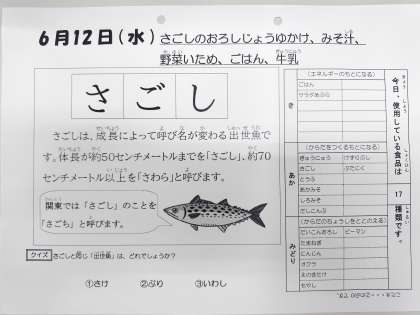 6月12日(水) さごしのおろしじょうゆかけ、みそ汁、
野菜いため、ごはん、牛乳
さごし
さごしは、成長によって呼び名が変わる出世魚で
す。体長が約50センチメートルまでを「さごし」、約70
センチメートル以上を「さわら」と呼びます。
関東では「さごし」のことを
「さごち」と呼びます。
クイズ さごしと同じ「出世魚」は、どれでしょうか?
①さけ ②ぶり ③いわし
今日、使用している食品は
17
種類です。
き
(エネルギーのもとになる)
ごはん
サラダあぶら
あか
(からだをつくるもとになる)
ぎゅうにゅう けずりぶし
さごし ぶたにく
とうふ
あかみそ
しろみそ
だしこんぶ
みどり
(からだのちょうしをととのえる)
だいこんおろし ピーマン
たまねぎ
にんじん
オクラ
えのきたけ
もやし